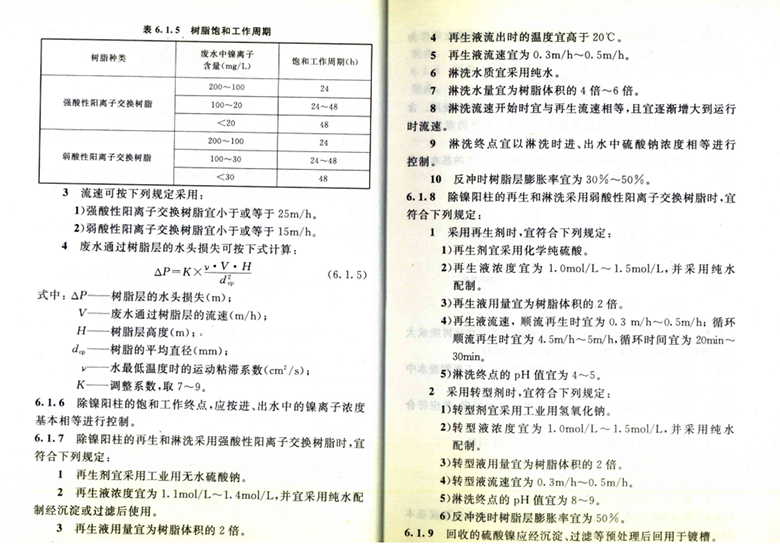 表 6.1.5 树脂饱和工作周期
树脂种类 废水中镍离子含量(mg/L) 饱和工作周期(h)
强酸性阳离子交换树脂 200～100 24
100～20 24～48
<20 48
弱酸性阳离子交换树脂 200～100 24
100～30 24～48
<30 48
3 流速可按下列规定采用:
1)强酸性阳离子交换树脂宜小于或等于 25m/h。
2)弱酸性阳离子交换树脂宜小于或等于 15m/h。
4 废水通过树脂层的水头损失可按下式计算:
ΔP=K×ν·V·H/d²cp (6.1.5)
式中: ΔP——树脂层的水头损失(m);
V——废水通过树脂层的流速(m/h);
H——树脂层高度(m);
dcp——树脂的平均直径(mm);
ν——水最低温度时的运动粘滞系数(cm²/s);
K——调整系数,取 7～9。
6.1.6 除镍阳柱的饱和工作终点,应按进、出水中的镍离子浓度
基本相等进行控制。
6.1.7 除镍阳柱的再生和淋洗采用强酸性阳离子交换树脂时,宜
符合下列规定:
1 再生剂宜采用工业用无水硫酸钠。
2 再生液浓度宜为 1.1mol/L～1.4mol/L,并宜采用纯水配
制经沉淀或过滤后使用。
3 再生液用量宜为树脂体积的 2 倍。
4 再生液流出时的温度宜高于 20℃。
5 再生液流速宜为 0.3m/h～0.5m/h。
6 淋洗水质宜采用纯水。
7 淋洗水量宜为树脂体积的 4 倍～6 倍。
8 淋洗流速开始时宜与再生流速相等,且宜逐渐增大到运行
时流速。
9 淋洗终点宜以淋洗时进、出水中硫酸钠浓度相等进行
控制。
10 反冲时树脂层膨胀率宜为 30%～50%。
6.1.8 除镍阳柱的再生和淋洗采用弱酸性阳离子交换树脂时,宜
符合下列规定:
1 采用再生剂时,宜符合下列规定:
1)再生剂宜采用化学纯硫酸。
2)再生液浓度宜为 1.0mol/L～1.5mol/L,并采用纯水
配制。
3)再生液用量宜为树脂体积的 2 倍。
4)再生液流速，顺流再生时宜为 0.3 m/h～0.5m/h; 循环
顺流再生时宜为 4.5m/h～5m/h,循环时间宜为 20min～
30min。
5)淋洗终点的 pH 值宜为 4～5。
2 采用转型剂时,宜符合下列规定:
1)转型剂宜采用工业用氢氧化钠。
2)转型液浓度宜为 1.0mol/L～1.5mol/L,并采用纯水
配制。
3)转型液用量宜为树脂体积的 2 倍。
4)转型液流速宜为 0.3m/h～0.5m/h。
5)淋洗终点的 pH 值宜为 8～9。
6)反冲洗时树脂层膨胀率宜为 50%。
6.1.9 回收的硫酸镍应经沉淀、过滤等预处理后回用于镀槽。